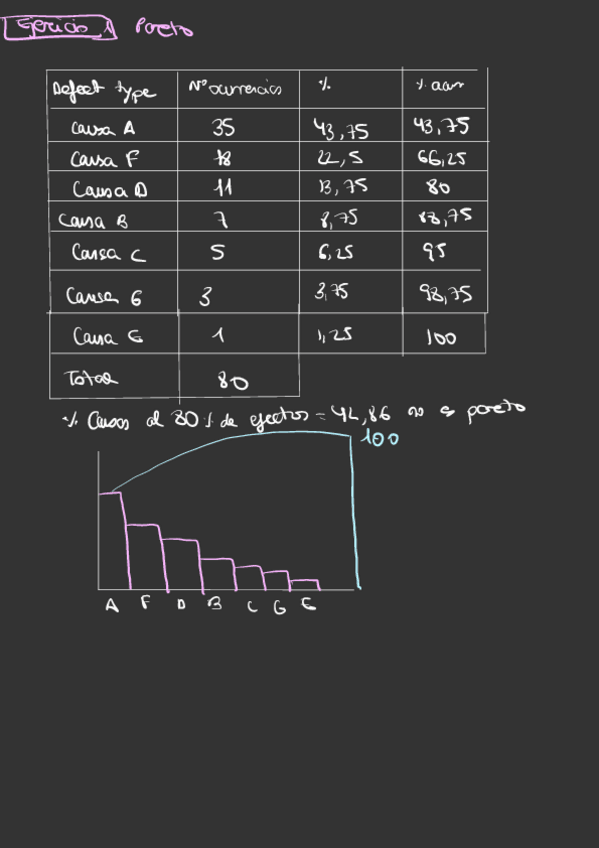 Ejercicio 1 Pareto
Defect type Nº ocurrencias % % acum
Causa A 35 43,75 43,75
Causa F 18 22,5 66,25
Causa D 11 13,75 80
Causa B 7 8,75 88,75
Causa C 5 6,25 95
Causa G 3 3,75 98,75
Causa E 1 1,25 100
Total 80
% Causas al 80% de efectos = 42,86 no es pareto
100
A F D B C G E